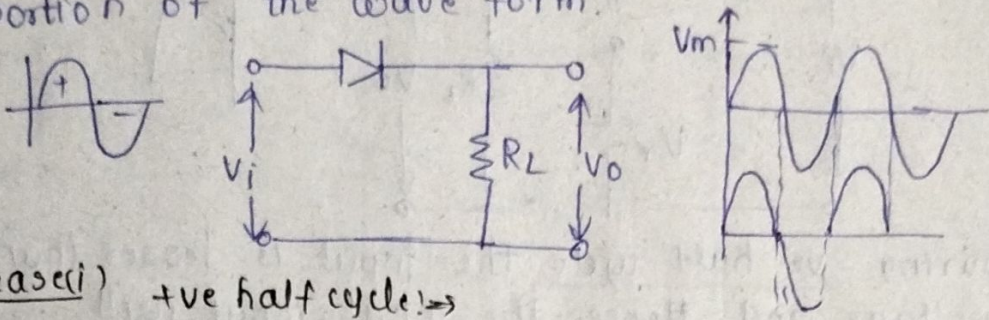 portion of the wave form.
+
-
Vm
Vi
RL
Vo
case(i) +ve half cycle:→